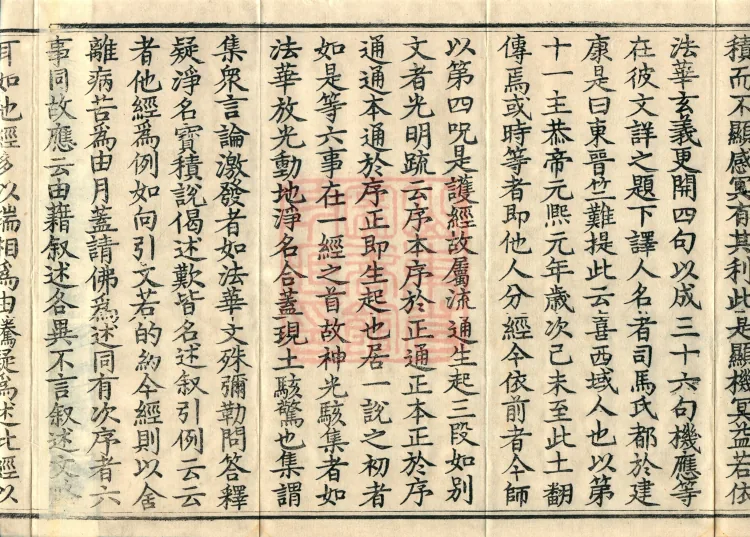 積而不顯感冥有其利此是顯機冥益若依
法華玄義更開四句以成三十六句機應等
在彼文詳之題下譯人名者司馬氏都於建
康是曰東晉竺難提此云喜西域人也以第
十一主恭帝元熙元年歲次己未至此土翻
傳焉或時等者即他人分經今依前者今師
以第四呪是護經故屬流通生起三段如別
文者光明疏云序本序於正通正本正於序
通通本通於序正即生起也居一說之初者
如是等六事在一經之首故神光駭集者如
法華放光動地淨名合蓋現土駭驚也集謂
集衆言論激發者如法華文殊彌勒問答釋
疑淨名寶積說偈述歎皆名述叙引例云云
者他經為例如向引文若的約今經則以舍
離病苦為由月蓋請佛為述同有次序者六
事同故應云由藉叙述各異不言叙述文
耳如他經多以瑞相為由騰疑為述此經以